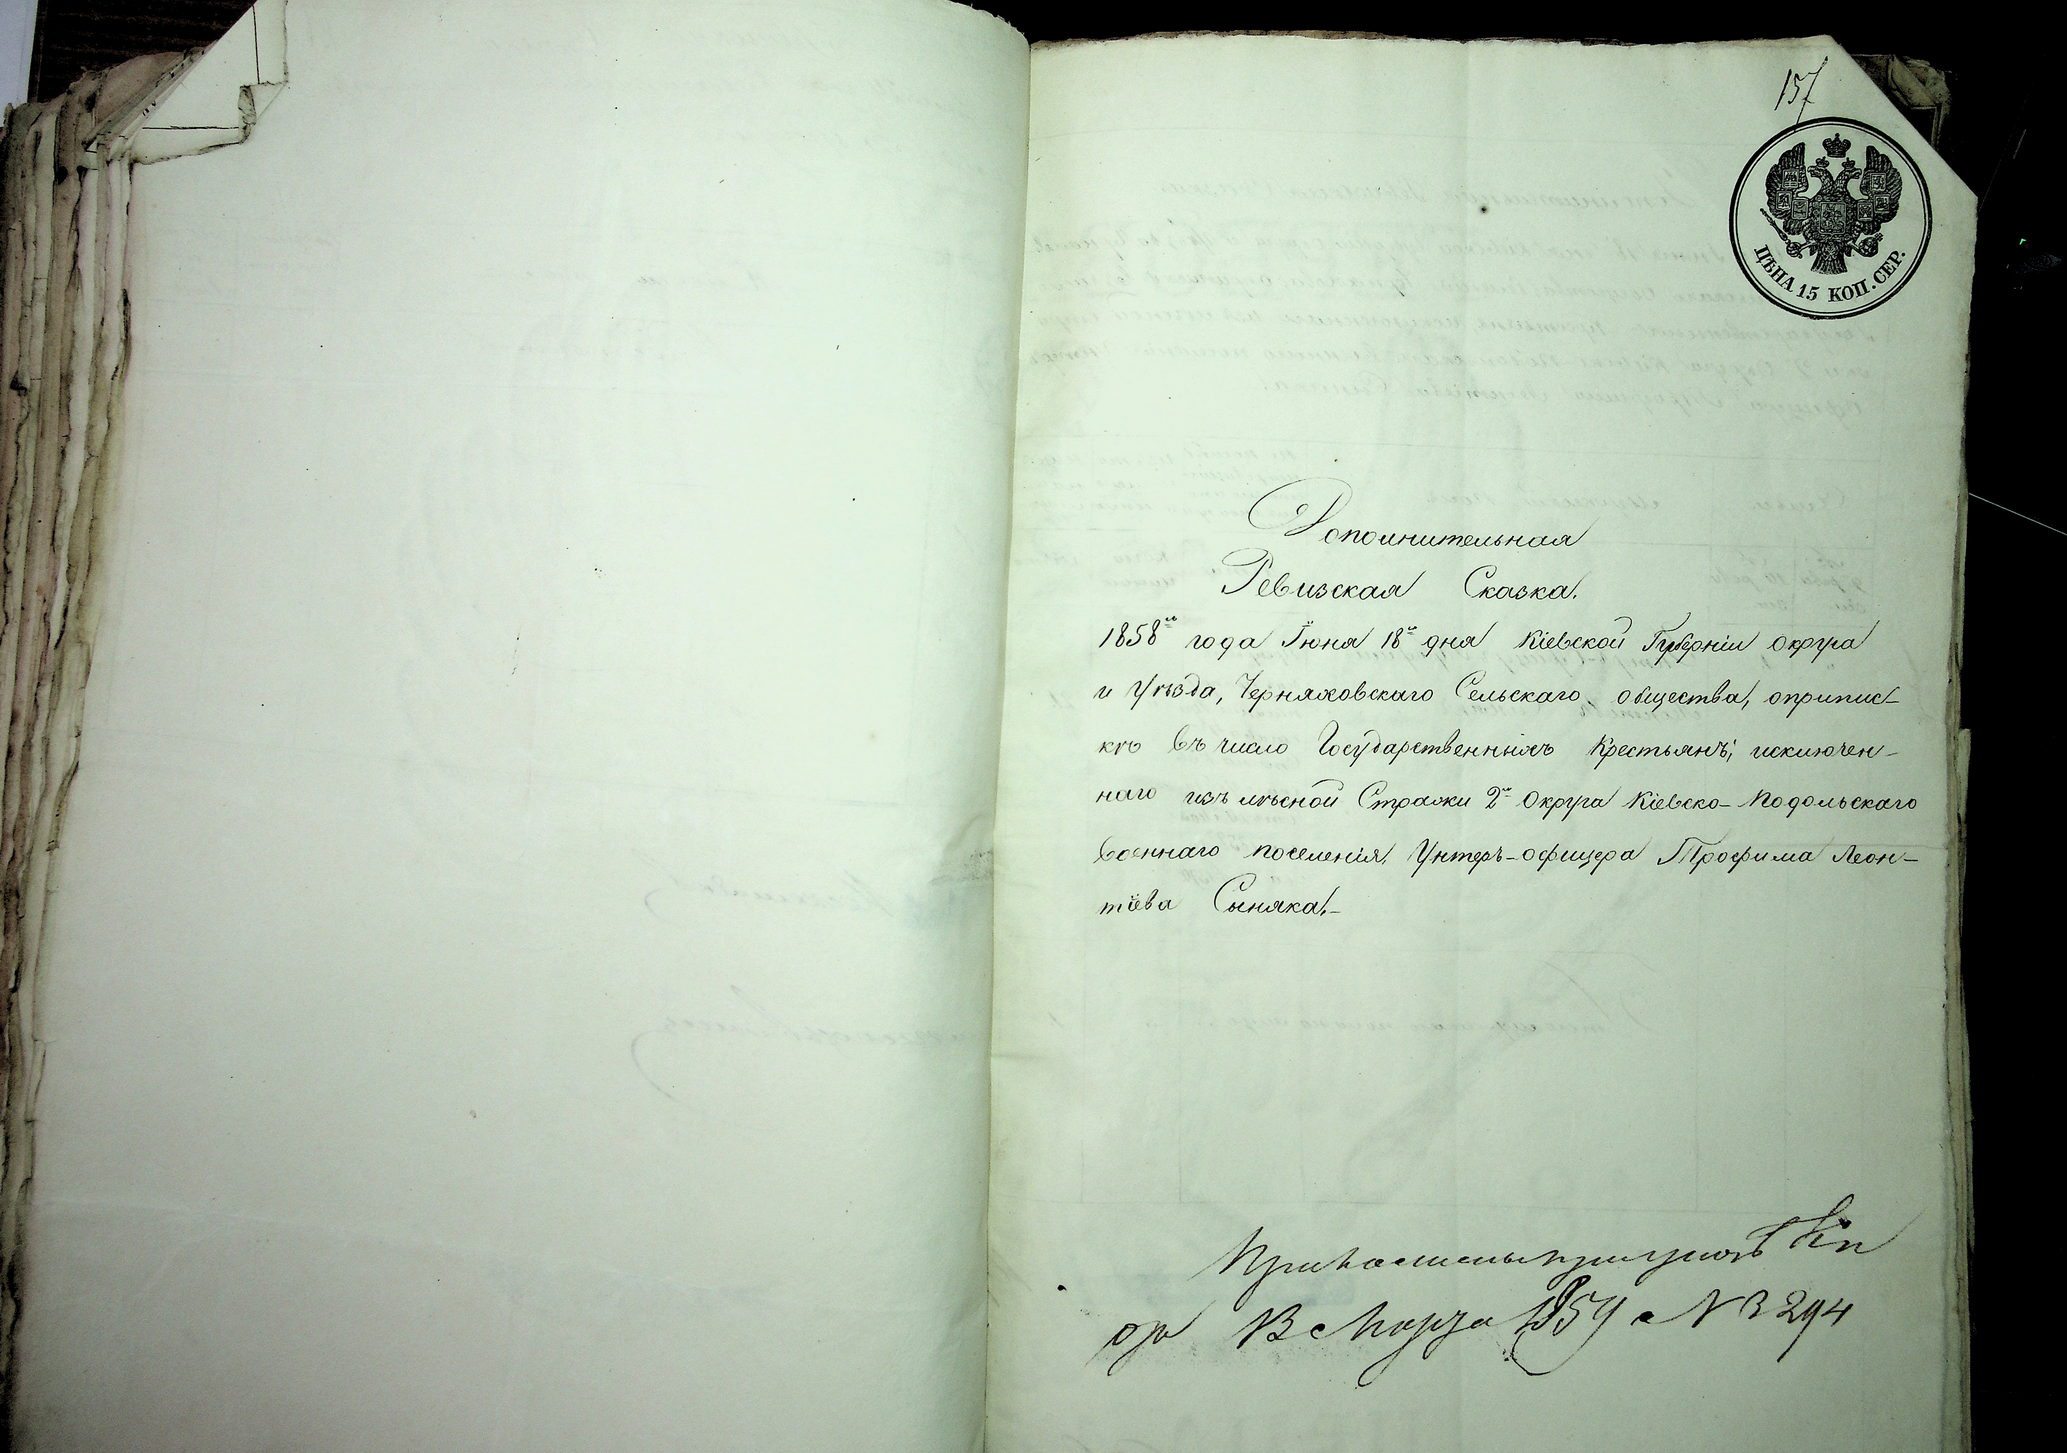 157
ЦѢНА 15 КОП. СЕР.
Дополнительная
Ревизская Сказка.
1858го года Іюня 18го дня Кіевской Губерніи округа
и Уѣзда, Черняховскаго Сельскаго общества, оприпис-
кѣ въ число Государственныхъ Крестьянъ, исключен-
наго изъ лѣсной Стражи 2го Округа Кіевско-Подольскаго
Военнаго поселенія, Унтеръ-офицера Трофима Леон-
тіева Сыняка.-
Марта 1859 № 3294